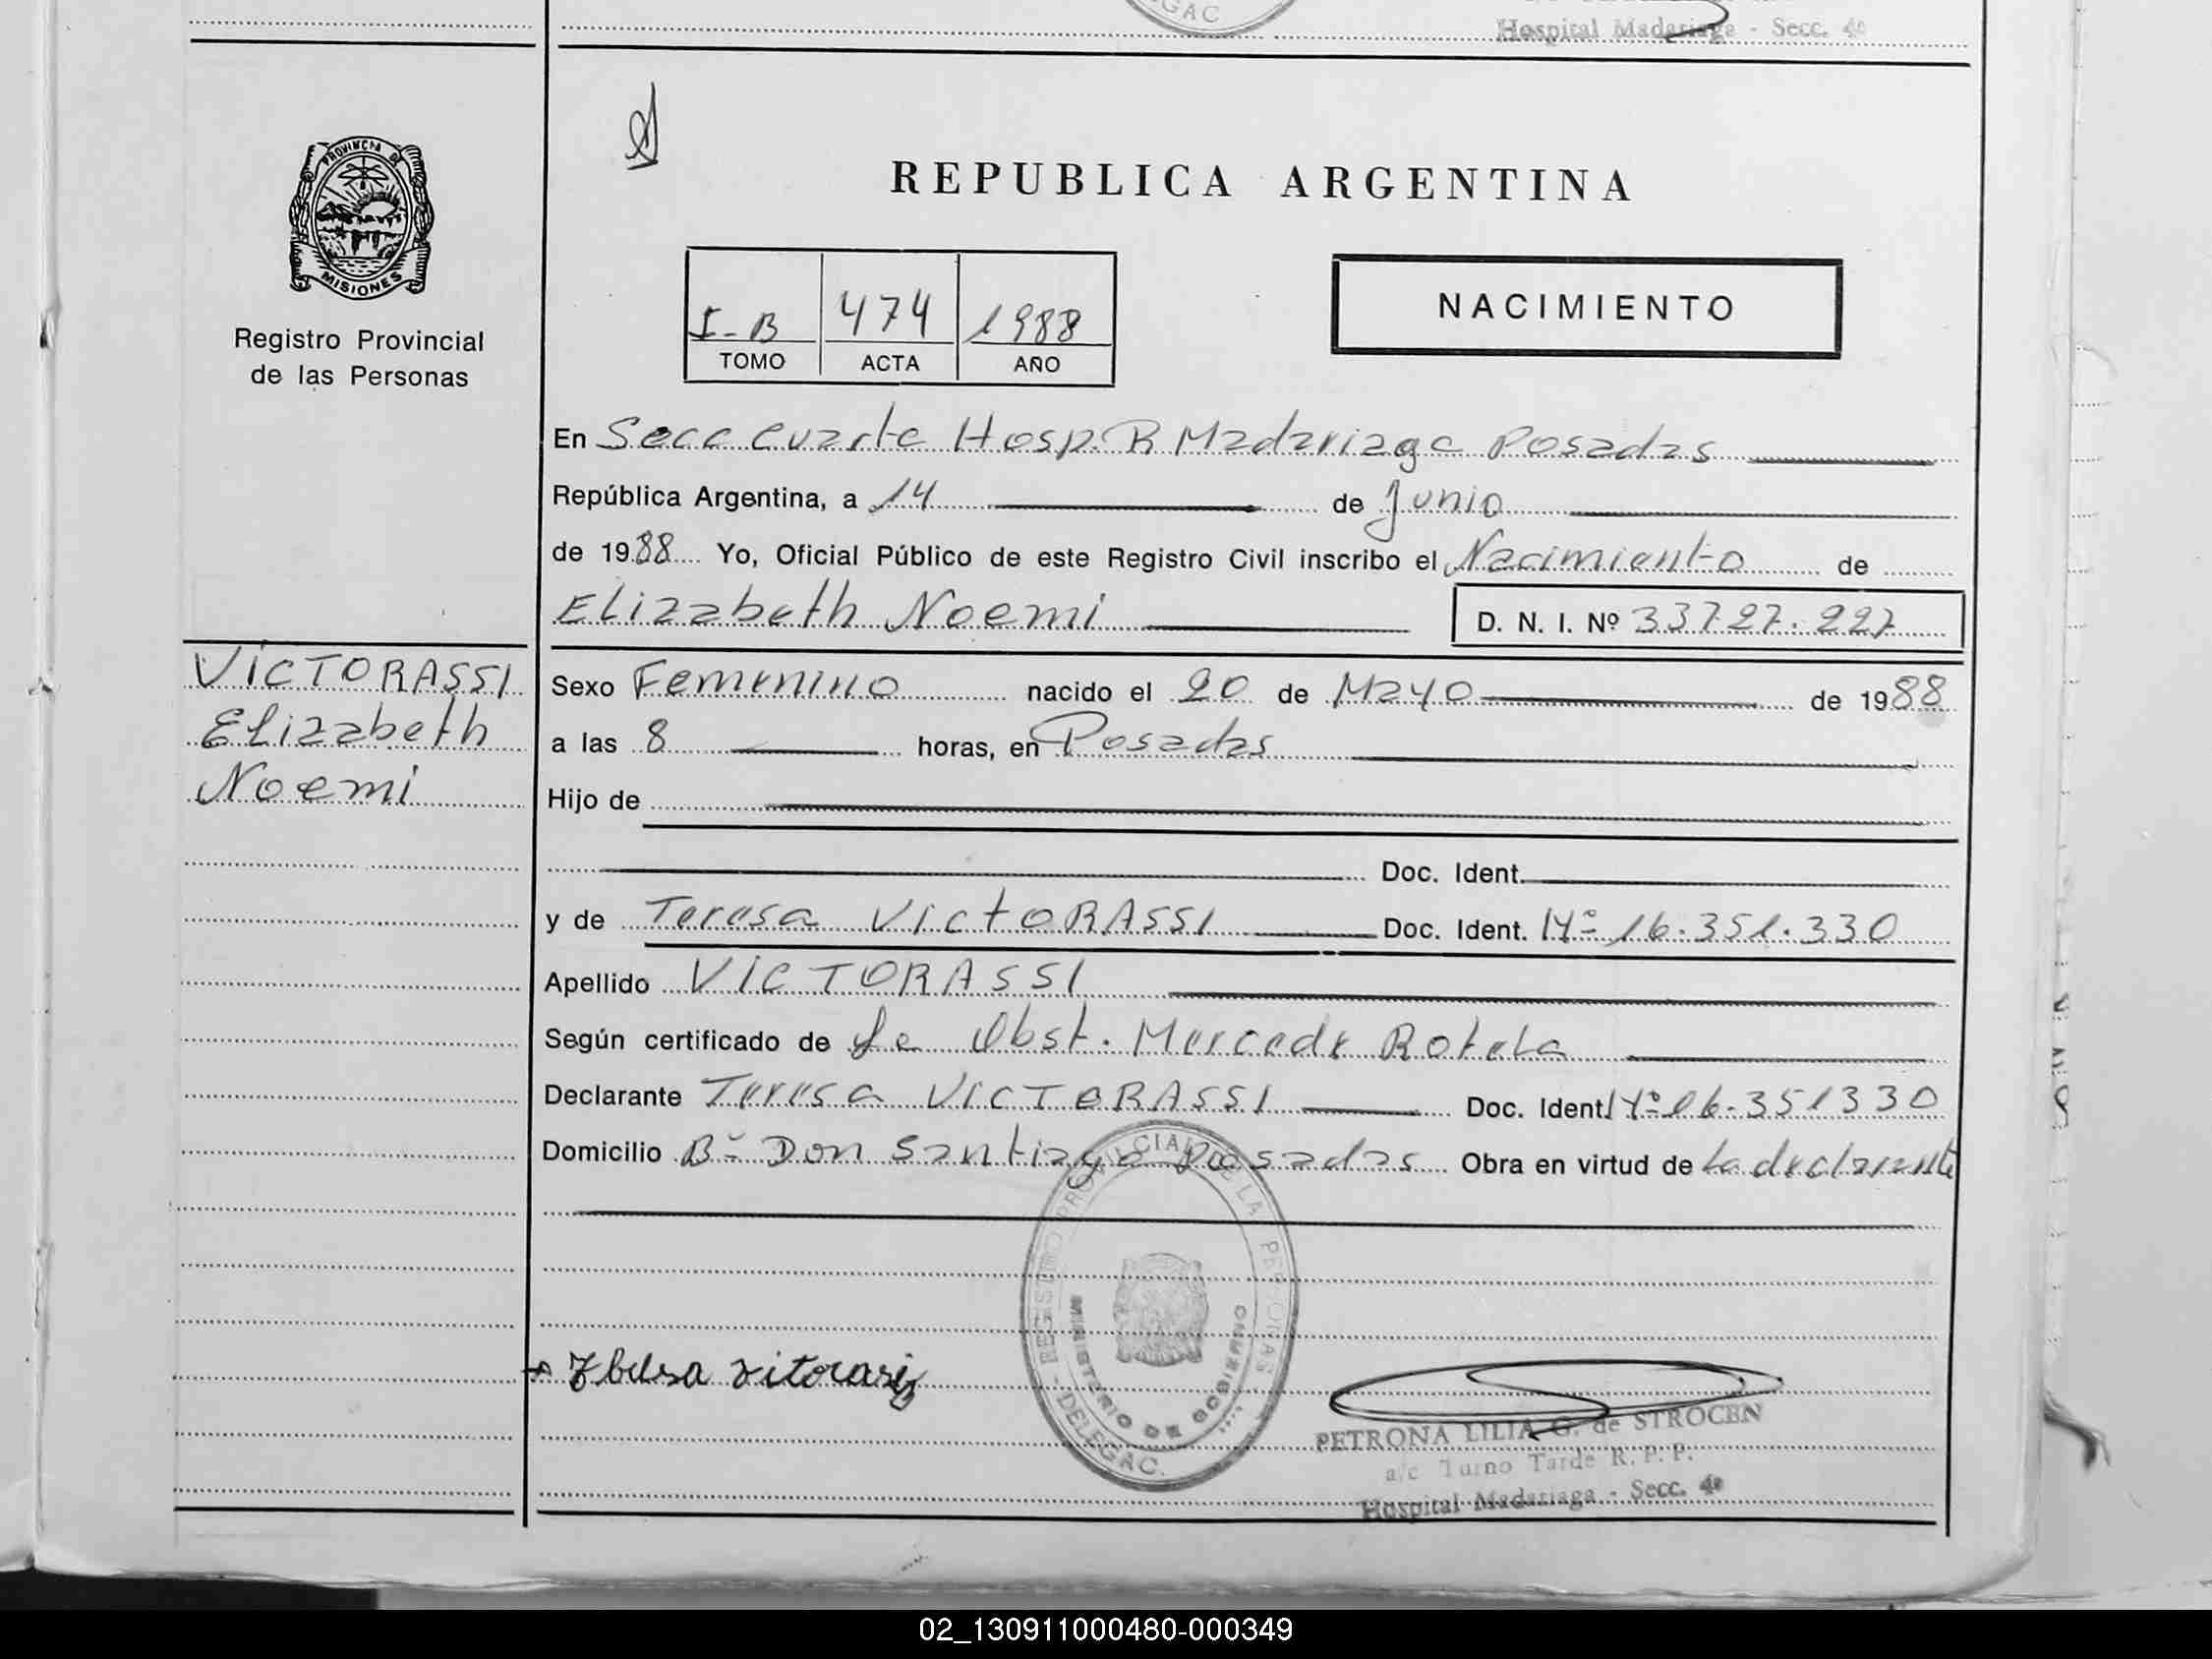 Hospital Madariaga - Secc. 4ª
PROVINCIA DE
MISIONES
Registro Provincial
de las Personas
REPUBLICA ARGENTINA
I-B 474 1988
TOMO ACTA AÑO
NACIMIENTO
En Secc cuarta Hosp. R Madariaga Posadas
República Argentina, a 14 de Junio
de 1988 Yo, Oficial Público de este Registro Civil inscribo el Nacimiento de
Elizabeth Noemi D. N. I. Nº 33727.227
VICTORASSI
Elizabeth
Noemi
Sexo Femenino nacido el 20 de Mayo de 1988
a las 8 horas, en Posadas
Hijo de
Doc. Ident.
y de Teresa VictORASSI Doc. Ident. Nº 16.351.330
Apellido VICTORASSI
Según certificado de La Obst. Mercede Rotela
Declarante Teresa VICTORASSI Doc. Ident. Nº 16.351330
Domicilio Bº Don Santiago Posadas Obra en virtud de La declarante
REGISTRO PROVINCIAL DE LA PERSONAS
MINISTERIO DE GOBIERNO
- DELEGAC.
PETRONA LILIA G. de STROCEN
a/c Turno Tarde R. P. P.
Hospital Madariaga - Secc. 4ª
02_130911000480-000349